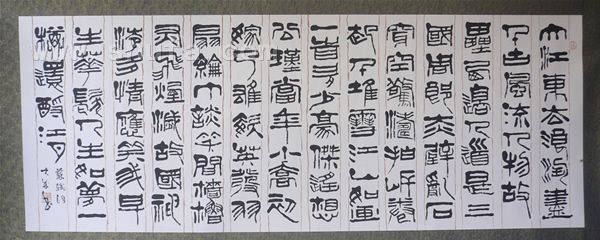 大江東去浪淘盡
千古風流人物故
壘西邊人道是三
國周郎赤壁亂石
穿空驚濤拍岸卷
起千堆雪江山如畫
一時多少豪傑遙想
公瑾當年小喬初
嫁了雄姿英發羽
扇綸巾談笑間檣櫓
灰飛煙滅故國神
游多情應笑我早
生華髮人生如夢一
樽還酹江月
蘇軾詞